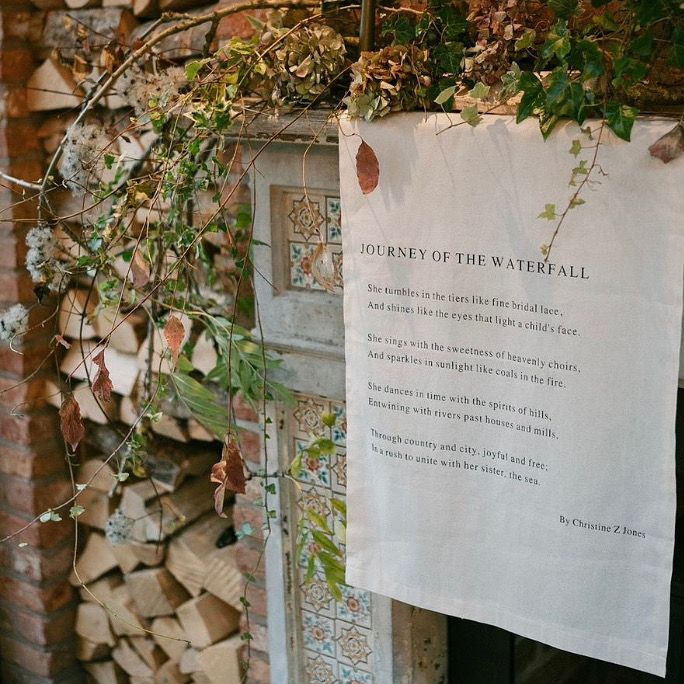 JOURNEY OF THE WATERFALL
She tumbles in the tiers like fine bridal lace,
And shines like the eyes that light a child's face.
She sings with the sweetness of heavenly choirs,
And sparkles in sunlight like coals in the fire.
She dances in time with the spirits of hills,
Entwining with rivers past houses and mills,
Through country and city, joyful and free;
In a rush to unite with her sister, the sea.
By Christine Z Jones